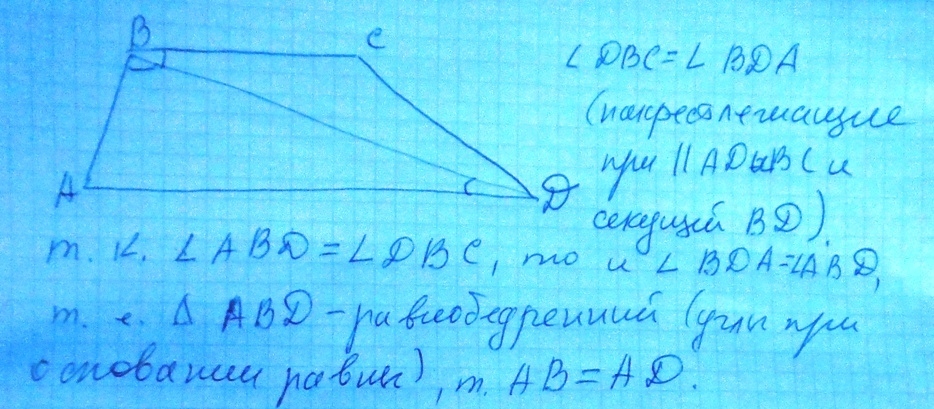 B
C
A
D
∠ DBC = ∠ BDA
(накрест лежащие
при || AD и BC и
секущей BD).
т. к. ∠ ABD = ∠ DBC, то и ∠ BDA = ∠ABD,
т. е. Δ ABD - равнобедренный (углы при
основании равны), т. AB = AD.